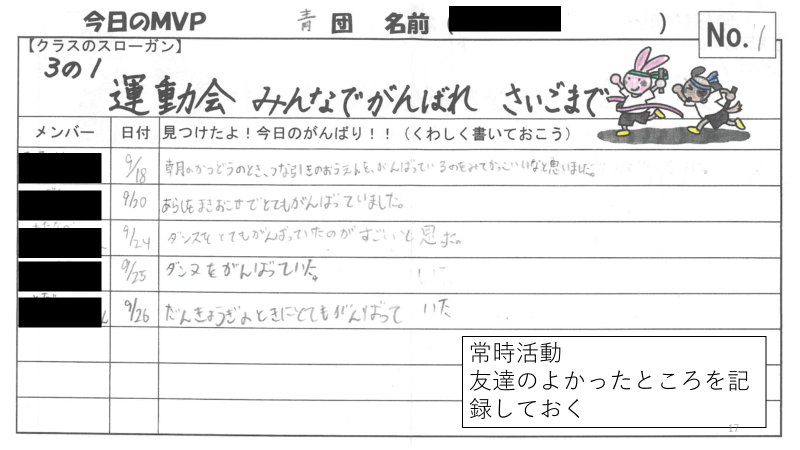 今日のMVP 青 団 名前 ( ) No.11
【クラスのスローガン】
3の1
運動会 みんなでがんばれ さいごまで
メンバー 日付 見つけたよ！今日のがんばり！！（くわしく書いておこう）
9/18 朝のかつどうのとき、つな引きのおうえんを、がんばっているのをみてかっこいいなと思いました。
9/20 あらしをまきおこせでとてもがんばっていました。
9/24 ダンスをとてもがんばっていたのがすごいと思た。
9/25 ダンスをがんばっていた。
9/26 だんきょうぎのときにとてもがんばって いた
常時活動
友達のよかったところを記
録しておく
17